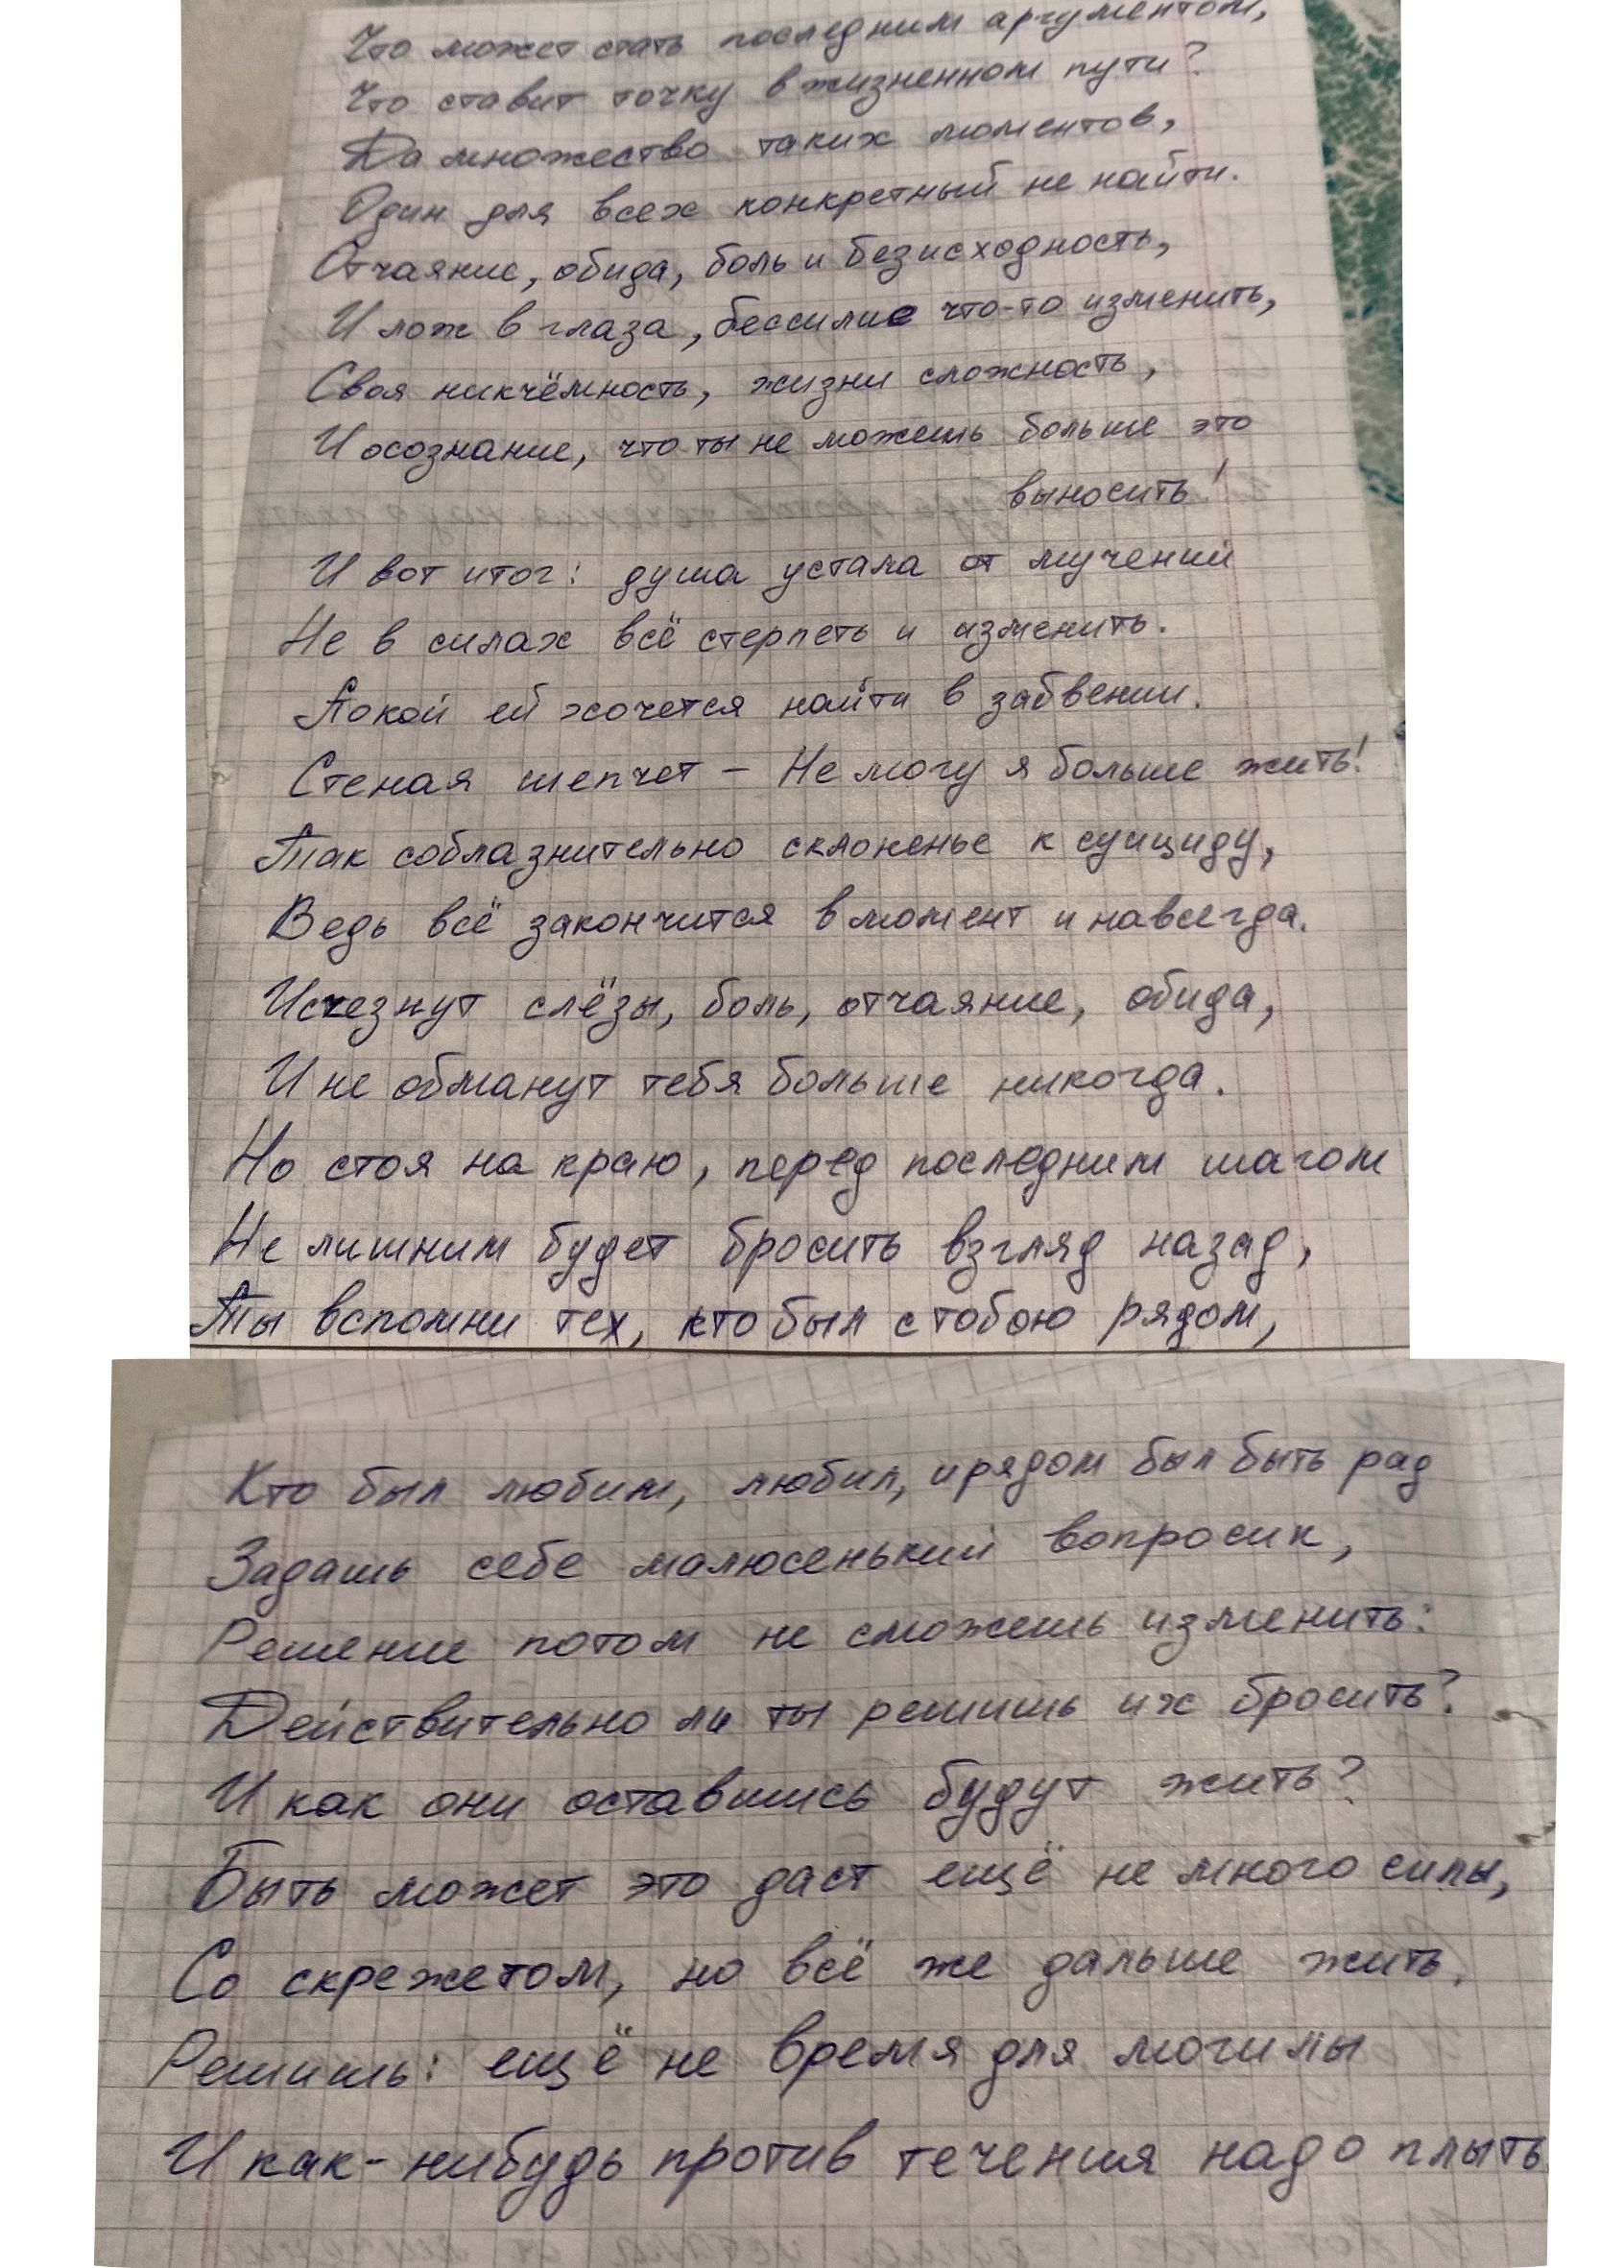 Что может стать последним аргументом,
Что ставит точку в жизненном пути?
Да множество таких моментов,
Один для всех конкретный не найти.
Отчаяние, обида, боль и безисходность,
И лож в глаза, бессилие что-то изменить,
Своя никчёмность, жизни сложность,
И осознание, что ты не можешь больше это
выносить!
И вот итог: душа устала от мучений
Не в силах всё стерпеть и изменить.
Покой ей хочется найти в забвении.
Стеная шепчет - Не могу я больше жить!
Так соблазнительно склоненье к суициду,
Ведь всё закончится в момент и навсегда.
Исчезнут слёзы, боль, отчаяние, обида,
И не обманут тебя больше никогда.
Но стоя на краю, перед последним шагом
Не лишним будет бросить взгляд назад,
Ты вспомни тех, кто был с тобою рядом,
Кто был любим, любил, и рядом был быть рад
Задашь себе малюсенький вопросик,
Решение потом не сможешь изменить:
Действительно ли ты решишь их бросить?
И как они оставшись будут жить?
Быть может это даст ещё не много силы,
Со скрежетом, но всё же дальше жить.
Решишь: ещё не время для могилы
И как-нибудь против течения надо плыть